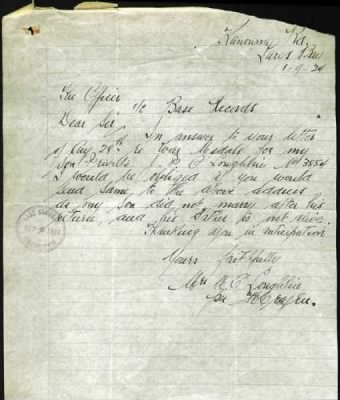 Kanowna Rd,
1-9-24
The Officer
i/c Base Records
Dear Sir, In answer to your letter
of Aug 28th re War Medals for my
Son Private P. C. Loughlin No 3854
I would be obliged if you would
send same to the above address
as my son did not marry after his
return, and his Father is not alive.
Thanking you in anticipation
Yours Faithfully
Mrs M. C. Loughlin
per